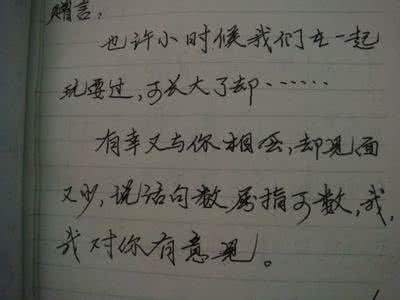 赠言：
也许小时候我们在一起
玩耍过，可长大了却……
有幸又与你相会，却见面
又少，说话句数屈指可数，我，
我对你有意见。